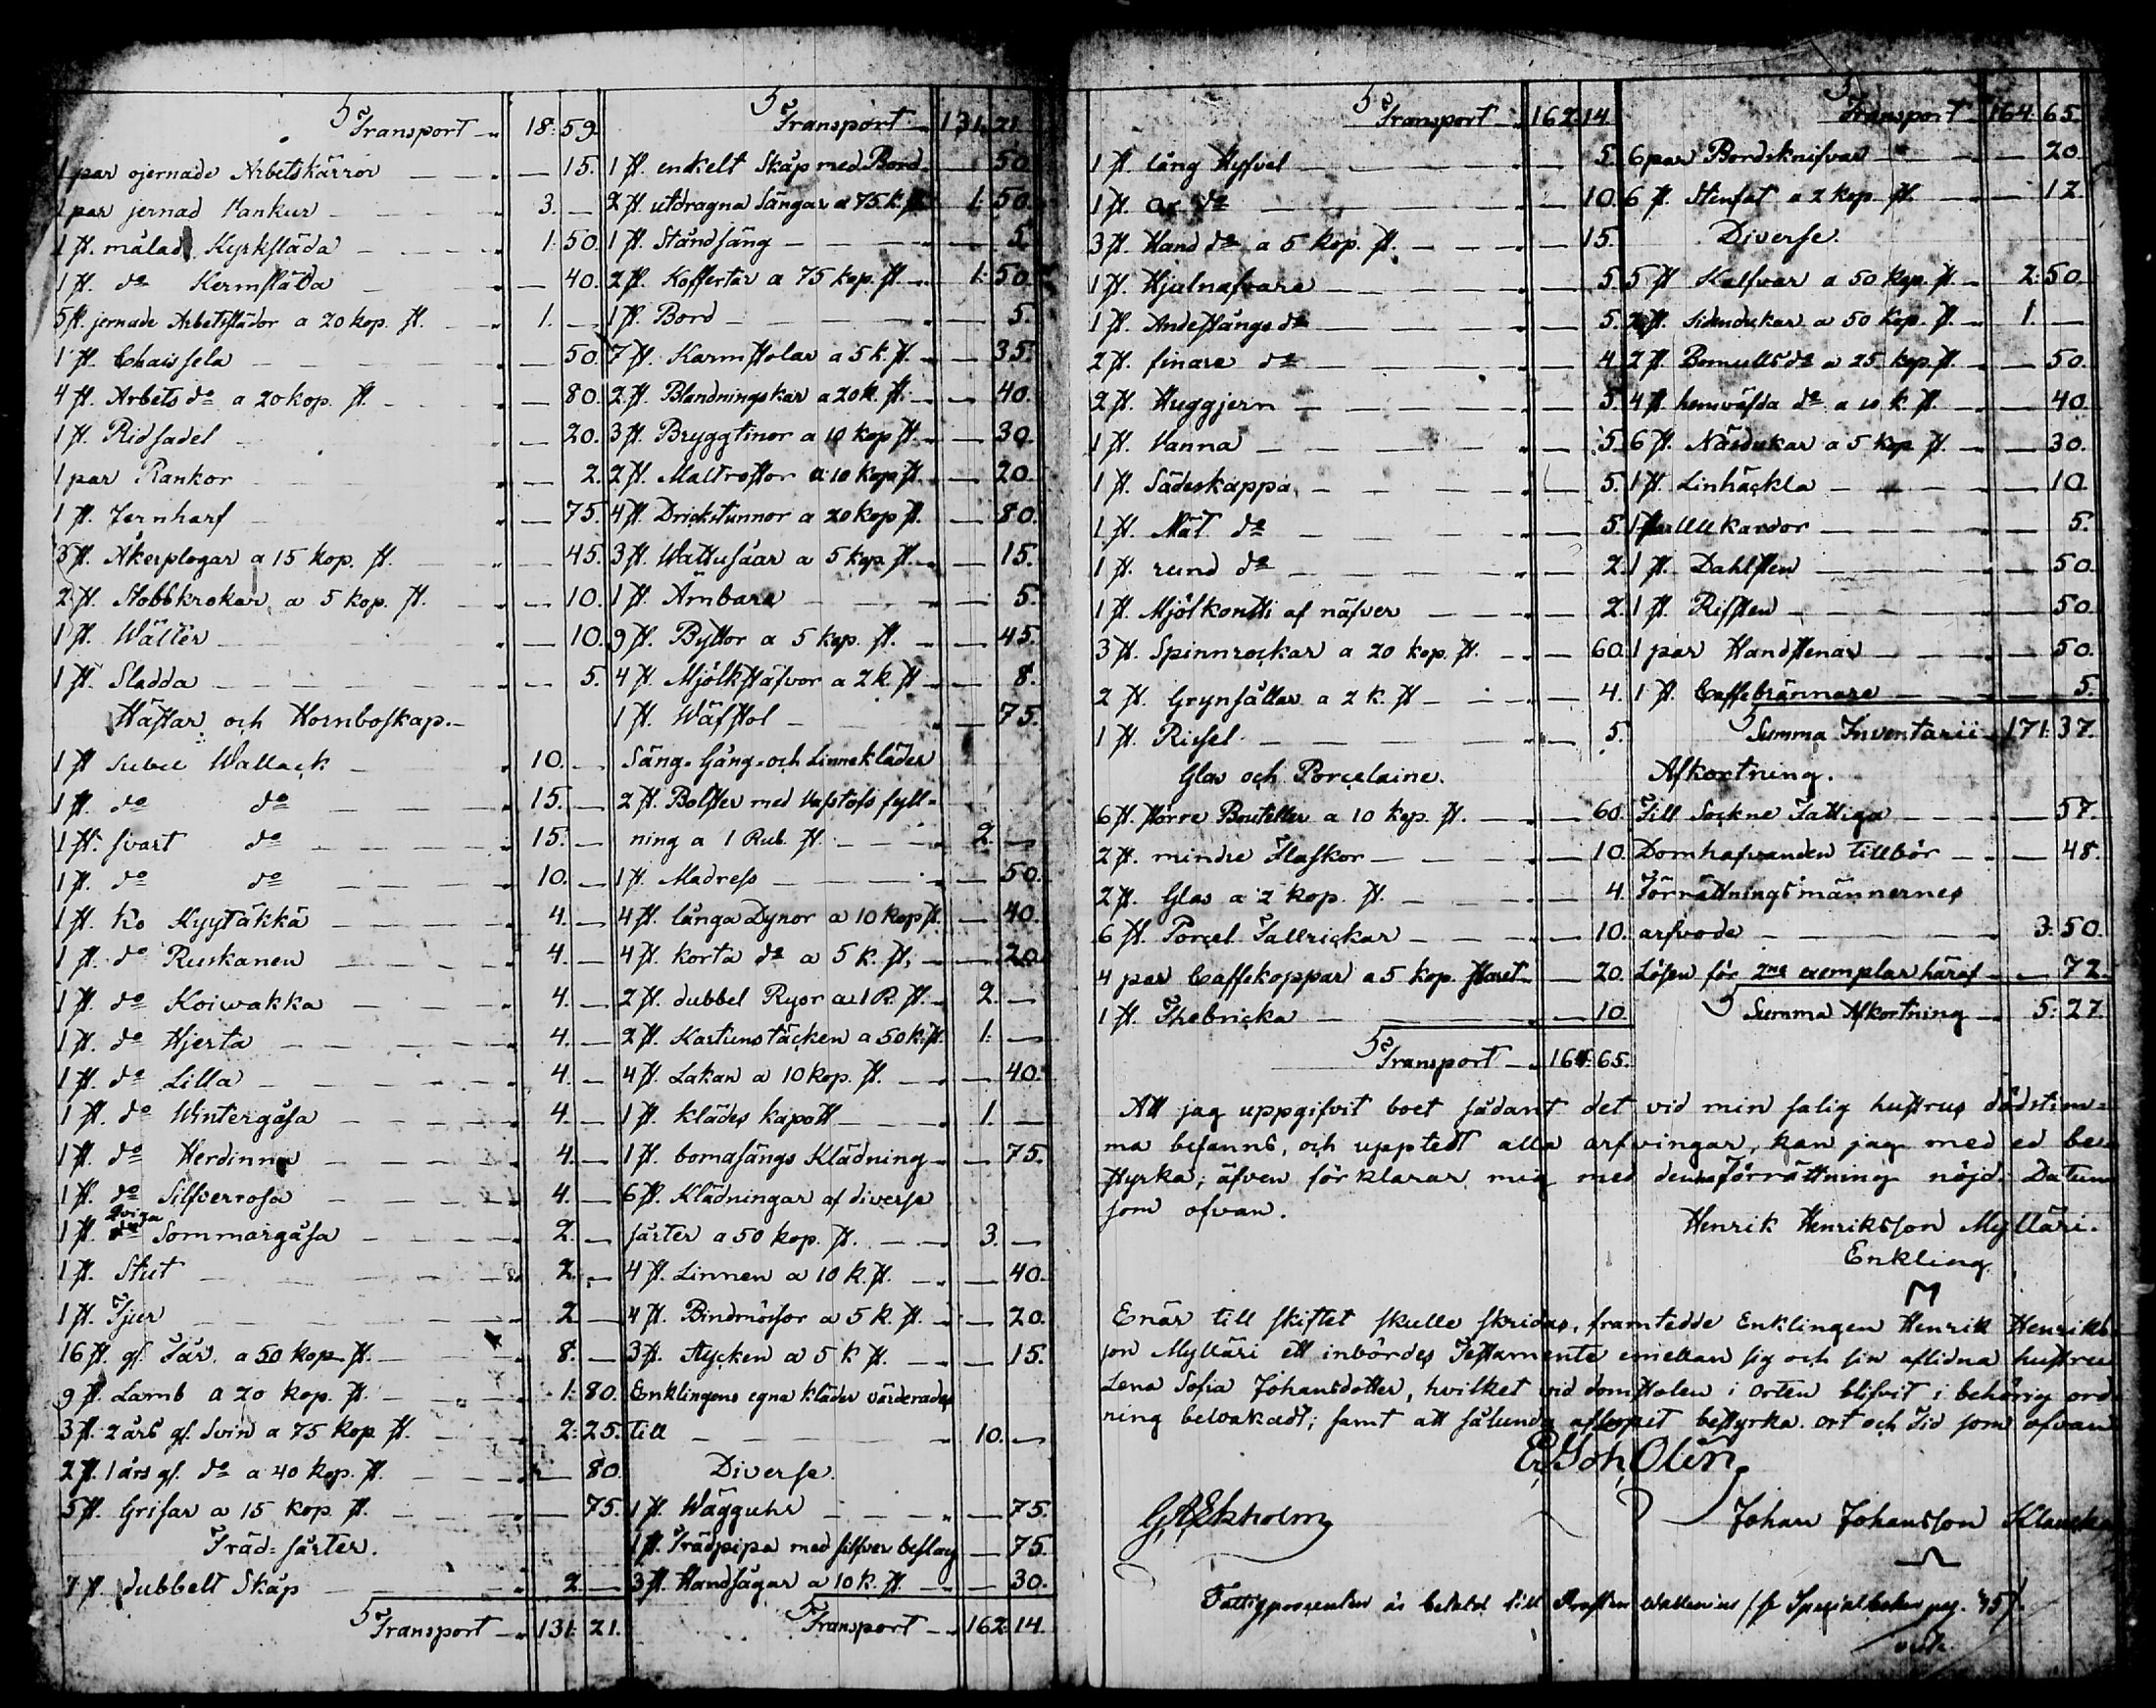 Transport 18: 59.
1 par ojernade Arbetskärror — 15.
1 par jernad Kankur 3. —
1 st. målad Kyrksläda 1: 50.
1 st. do Kermsläda — 40.
5 st. jernade Arbetsslädor a 20 kop. st. 1. —
1 st. Chaissela — 50.
4 st. Arbets do a 20 kop. st. — 80.
1 st. Ridsadel — 20.
1 par Rankor — 2.
1 st. Jernharf — 75.
3 st. Åkerplogar a 15 kop. st. — 45.
2 st. Stobbkrokar a 5 kop. st. — 10.
1 st. Wältër — 10.
1 st. Sladda — 5.
Hästar och Hornboskap.
1 st Wallack 10. —
1 st. do do 15. —
1 st. svart do 15. —
1 st. do do 10. —
1 st. ko Kyytäkkä 4. —
1 st. do Ruskanen 4. —
1 st. do Koiwakka 4. —
1 st. do Hjerta 4. —
1 st. do Lilla 4. —
1 st. do Wintergåsa 4. —
1 st. do Herdinna 4. —
1 st. do Silfverrosa 4. —
1 st. qviga Sommargåsa 2. —
1 st. Stut 2. —
1 st. Tjur 2 —
16 st. gf. Får. a 50 kop. st. 8. —
9 st. Lamb a 20 kop. st. 1: 80.
3 st. 2 års gf. Svin a 75 kop st. 2: 25.
2 st. 1 års gf. do a 40 kop. st. — 80.
5 st. Grisar a 15 kop. st. — 75.
Träd-sårter.
1 st. dubbelt Skåp 2 —
Transport 131: 21.
Transport 131. 21
1 st. enkelt Skåp med Bord — 50
2 st. utdragna Sängar a 75 k. st. 1: 50.
1 st. Ståndsäng — 5.
2 st. Koffertar a 75 kop. st. 1: 50.
1 st. Bord — 5.
7 st. Karmstolar a 5 k. st. — 35.
2 st. Blandningskar a 20 k. st. — 40.
3 st. Bryggtinor a 10 kop st. — 30.
2 st. Maltrostor a 10 kop st. — 20.
4 st. Drickstunnor a 20 kop st. — 80.
3 st. Wattusåar a 5 kop st. — 15.
1 st. Ämbara — 5.
9 st. Byttor a 5 kop. st. — 45.
4 st. Mjölkstäfvor a 2 k. st — 8.
1 st. Wäfstol — 75.
Säng- Gång- och Linnekläder
2 st. Bolster med fyll-
ning a 1 Rub. st. 2. —
1 st. Madrass — 50.
4 st. långa Dynor a 10 kop st. — 40.
4 st. korta do a 5 k. st. — 20
2 st. dubbel Ryor a 1 R. st. 2. —
2 st. Kartunstäcken a 50 k. st. 1: —
4 st. Lakan a 10 kop. st. — 40.
1 st. klädes kapott 1. —
1 st. bomasängs Klädning — 75.
6 st. Klädningar af diverse
sårter a 50 kop. st. 3. —
4 st. Linnen a 10 k. st. — 40.
4 st. Bindmössor a 5 k. st. — 20.
3 st. stycken a 5 k st. — 15.
Eenklingens egna kläder värderades
till 10. —
Diverse.
1 st. Wägguhr — 75.
1 st. Trädpipa med silfver beslag — 75.
3 st. Handsågar a 10 k. st. — 30.
Transport 162: 14.
Transport 162. 14.
1 st. lång Hyfvel — 5
1 st. do — 10.
3 st. Hand do a 5 kop. st. — 15.
1 st. Hjulnafvare — 5
1 st. do — 5.
2 st. finare do — 4.
2 st. Huggjern — 5.
1 st. Vanna — 5.
1 st. Sädeskappa — 5.
1 st. Mät do — 5.
1 st. rund do — 2.
1 st. Mjölkontti af näfver — 2.
3 st. Spinnrockar a 20 kop. st. — 60.
2 st. Grynsållar a 2 k. st — 4.
1 st. Rissel — 5.
Glas och Porcelaine.
6 st. större Boutellier a 10 kop. st. — 60.
2 st. mindre Flaskor — 10.
2 st. Glas a 2 kop. st. — 4.
6 st. Porcel. Tallrickar — 10.
4 par Caffekoppar a 5 kop. paret — 20.
1 st. Thebricka — 10.
Transport 164: 65.
Transport 164: 65.
6 par Bordsknifvar — 20.
6 st. Stenfat a 2 kop. st. — 12.
Diverse.
5 st Kalfvar a 50 kop. st. 2: 50.
2 st. Sidendukar a 50 kop. st. 1. —
2 st. Bomullsdo a 25 kop. st. — 50.
4 st. hemväfda do a 10 k. st. — 40.
6 st. Näsdukar a 5 kop st. — 30.
1 st. Linhäckla — 10.
1 par Ullkardor — 5.
1 st. Dahlsten — 50.
1 st. Rifsten — 50
1 par Handstenar — 50.
1 st. Caffebrännare — 5.
Summa Inventarii 171: 37.
Afkortning.
Till Sockne Fattiga — 57.
Domhafvanden tillbör — 48.
Förrättningsmännernes
arfvode 3: 50.
Lösen för 2ne exemplar häraf — 72.
Summa Afkortning 5: 27.
Att jag uppgifvit boet sådant det vid min salig hustrus dödstim-
ma befanns, och upptedt alla arfvingar, kan jag med ed be-
styrka; äfven förklarar mig med denna förrättning nöjd. Datum
som ofvan.
Henrik Henriksson Mylläri.
Enkling
Enär till skiftet skulle skridas, framtedde Enklingen Henrik Henriks-
son Mylläri ett inbördes Testamente emellan sig och sin aflidna hustru
Lena Sofia Johansdotter, hvilket vid domstolen i orten blifvit i behörig ord-
ning bevakadt; samt att sålunda aflupit bestyrka. Ort och Tid som ofvan
Er. Joh. Olin
G A Ekholm
Johan Johansson
Fattigprocenten är betald till Prosten Wallenius (se Specialboken pag. 45).